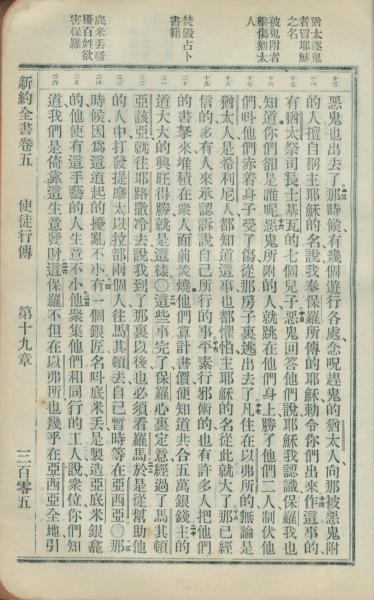 猶太逐鬼
者冒耶穌
之名
被鬼附者
傷猶太
人
焚毀占卜
書籍
底米丟聳
百姓欲
害保羅
惡鬼也出去了那時候有幾個遊行各處念呪趕鬼的猶太人向那被惡鬼附
的人擅自稱主耶穌的名說我奉保羅所傳的耶穌勅令你們出來作這事的
有猶太祭司長士基瓦的七個兒子惡鬼回答他們說耶穌我認識保羅我也
知道你們卻是誰呢惡鬼所附的人就跳在他們身上勝了他們二人制伏他
們呌他們赤着身子受了傷從那房子裏逃出去了凡住在以弗所的無論是
猶太人是希利尼人都知道這事也都懼怕主耶穌的名從此就大了那已經
信的多有人來承認訴說自己所行的事平素行邪術的也有許多人把他們
的書拏來堆積在衆人面前焚燒他們算計書價便知道共合五萬銀錢主的
道大大的興旺得勝就是這樣〇這些事完了保羅心裏定意經過了馬其頓
亞該亞就往耶路撒冷去說我到了那裏以後也必須看羅馬於是從幫助他
的人中打發提摩太以拉都兩個人往馬其頓去自己暫時等在亞西亞〇那
時候因爲這道起的擾亂不小有一個銀匠名呌底米丟是製造亞底米銀龕
的他使有這手藝的人生意不小他聚集他們和同行的工人說衆位你們知
道我們是倚靠這生意發財這保羅不但在以弗所也幾乎在亞西亞全地引
新約全書卷五　使徒行傳　第十九章　三百零五